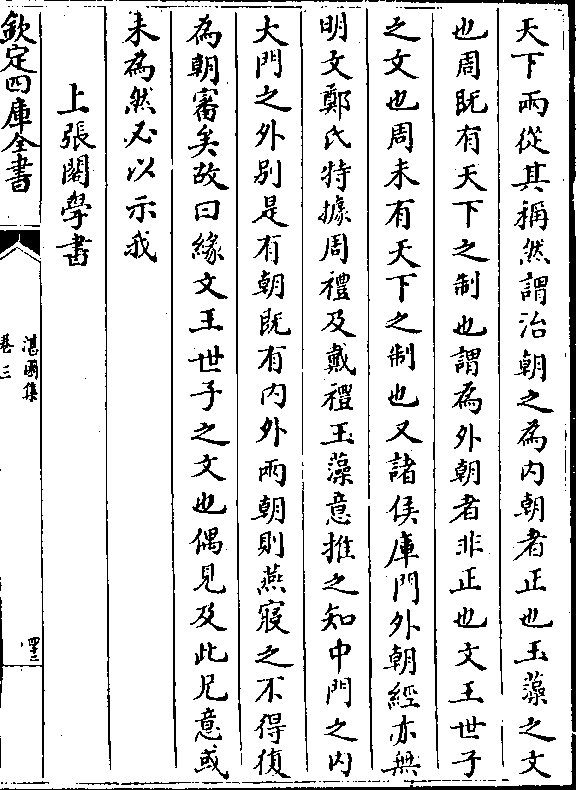 天下兩從其稱然謂治朝之為内朝者正也玉藻之文
也周既有天下之制也謂為外朝者非正也文王世子
之文也周未有天下之制也又諸侯庫門外朝經亦無
明文鄭氏特據周禮及戴禮玉藻意推之知中門之内
大門之外别是有朝既有内外兩朝則燕寢之不得復
為朝審矣故曰緣文王世子之文也偶見及此兄意或
未為然必以示我
上張閣學書
欽定四庫全書
湛園集
卷三